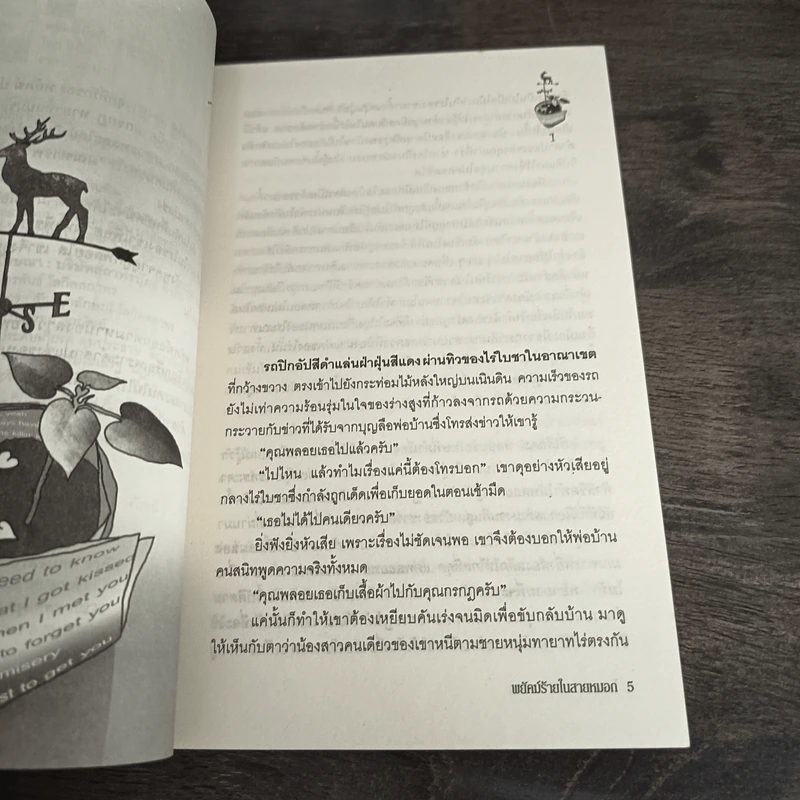 S
E
need to know
that I got kissed
when I met you
to forget you
misery
to get you
1
รถปิกอัปสีดำแล่นฝ่าฝุ่นสีแดง ผ่านทิวของไร่ใบชาในอาณาเขต
ที่กว้างขวาง ตรงเข้าไปยังกระท่อมไม้หลังใหญ่บนเนินดิน ความเร็วของรถ
ยังไม่เท่าความร้อนรุ่มในใจของร่างสูงที่ก้าวลงจากรถด้วยความกระวน-
กระวายกับข่าวที่ได้รับจากบุญลือพ่อบ้านซึ่งโทรส่งข่าวให้เขารู้
“คุณพลอยเธอไปแล้วครับ”
“ไปไหน แล้วทำไมเรื่องแค่นี้ต้องโทรบอก” เขาดุอย่างหัวเสียอยู่
กลางไร่ใบชาซึ่งกำลังถูกเด็ดเพื่อเก็บยอดในตอนเช้ามืด
“เธอไม่ได้ไปคนเดียวครับ”
ยิ่งฟังยิ่งหัวเสีย เพราะเรื่องไม่ชัดเจนพอ เขาจึงต้องบอกให้พ่อบ้าน
คนสนิทพูดความจริงทั้งหมด
“คุณพลอยเธอเก็บเสื้อผ้าไปกับคุณกรกฎครับ”
แค่นั้นก็ทำให้เขาต้องเหยียบคันเร่งจนมิดเพื่อขับกลับบ้าน มาดู
ให้เห็นกับตาว่าน้องสาวคนเดียวของเขาหนีตามชายหนุ่มทายาทไร่ตรงกัน
พยัคฆ์ร้ายในสายหมอก 5